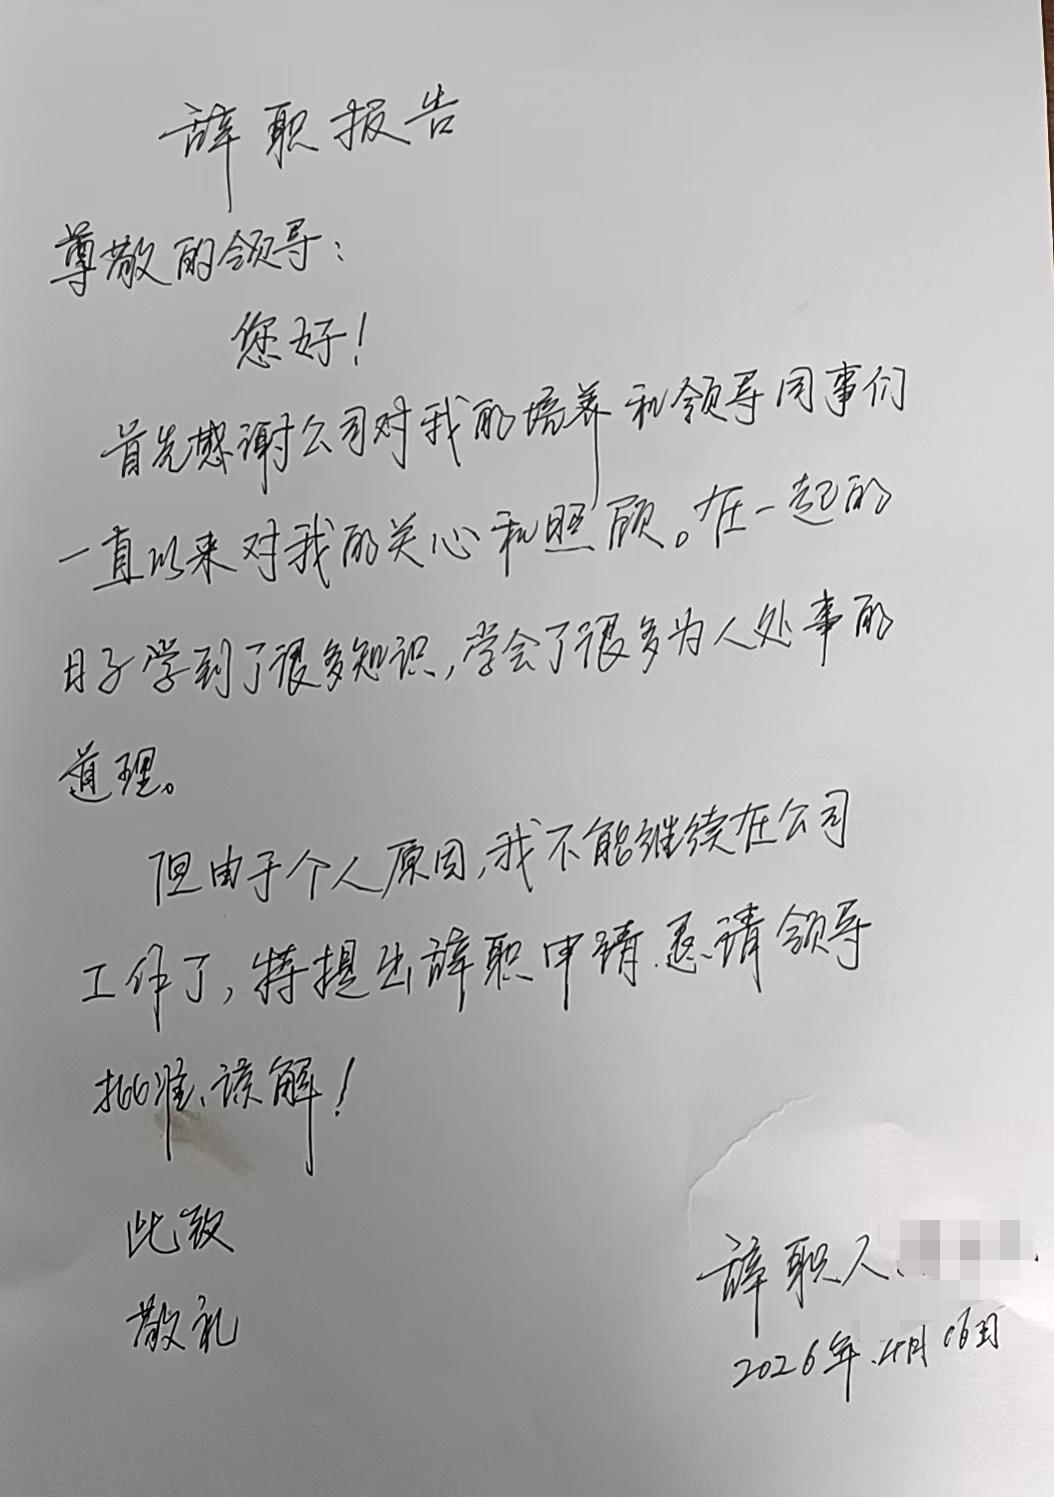 辞职报告
尊敬的领导:
您好!
首先感谢公司对我的培养和领导同事们
一直以来对我的关心和照顾。在一起的
日子学到了很多知识,学会了很多为人处事的
道理。
但由于个人原因,我不能继续在公司
工作了,特提出辞职申请.恳请领导
批准、谅解!
此致
敬礼
辞职人
2026年.4月06日